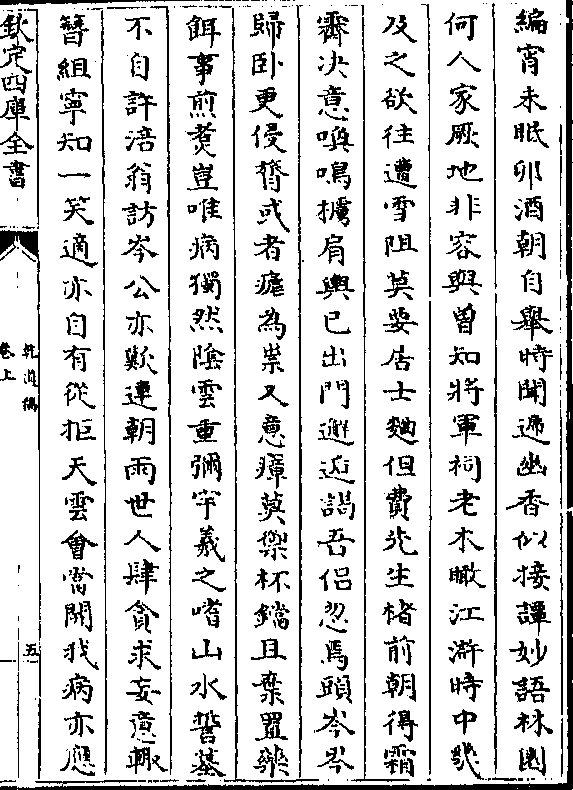 編宵未眠卯酒朝自舉時聞遞幽香似接譚妙語林園
何人家厥地非容與曾知將軍祠老木瞰江滸時中幾
及之欲往遭雪阻莫要居士麯但費先生楮前朝得霜
霽决意喚鳴艣肩輿已出門邂逅謁吾侣忽焉頭岑岑
歸卧更侵膂或者瘧為祟又意瘴莫禦杯鐺且棄置藥
餌事煎煑豈唯病獨然陰雲重彌宇羲之嗜山水誓墓
不自許涪翁訪岑公亦歎連朝雨世人肆貪求妄意輙
簪組寧知一笑適亦自有從拒天雲會當開我病亦應
欽定四庫全書
乾道稿
卷上
五